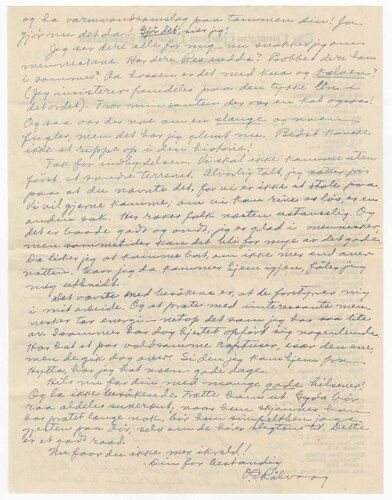 og ha varmvandsomslag paa tommen din! Ja
gjør nu det da. Gjør det, sier jeg
Jeg ser dere alle for mig nu snakker jeg om
menneskene. Har dere badet
i sommer? Aa hossen er det med kua og kalven?
(Jeg insisterer fremdeles paa den tykke l'en i
det ordet). Tror min santen der var en kat ogsaa!
Og saa var der noe om en slange og noen
fugler, men det har jeg glemt nu. Bedst kanske
ikke at rippe op i den historie!
Tak for indbydelsen. Vi skal ikke komme uten
først at sondre terrenet. Alvorlig talt, jeg setter pris
paa at du nævnte det, for vi er ikke at stole paa.
Vi vil gjerne komme, om vi kan rive os løs, er en
anden sak. Her rakes folk nesten ustanselig. Og
det er baade godt og ondt, jeg er glad i mennesker
men sommetider kan det bli for mye av det gode.
Da liker jeg at komme bort, om ikke mer end over
natten. Naar jeg da kommer hjem igjen, føler jeg
mig uthvilt.
Det værste med besøkene er, at de forstyrrer mig
i mit arbeide. Og at prate med interessante men-
nesker tar energi, netop det som jeg har saa lite
av. I sommer har dog hjertet opført sig nogenlunde
Har hat et par voldsomme rapturer, især den ene,
men de gik dog over. Siden jeg kom hjem fra
hytta, har jeg hat noen gode dage.
Hils nu far din med mange gode hilsener!
Og la ikke besøkende trætte ham ut. Gyda bør
raa aldeles suverænt, naar hun skjønner han
har pratt længe nok, bør hun simpelthen jage
gjesten paa dør, selv om de hører slegten til. Dette
er et godt raad.
Nu faar du ikke mer ikveld!
Din for bestandig
O E Rølvaag